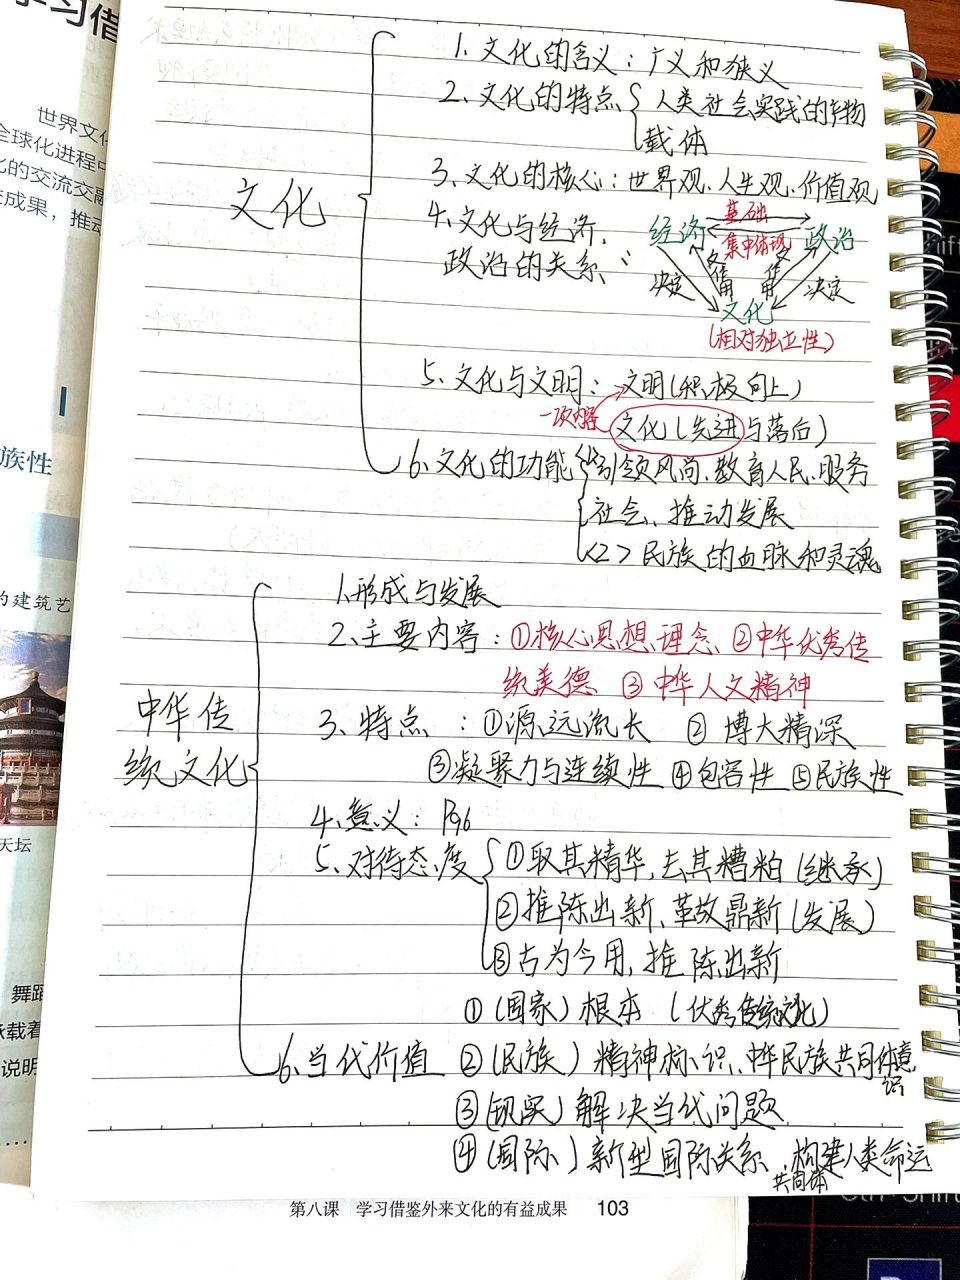 学习借
世界文化
全球化进程中
化的交流交融
成果，推动
族性
的建筑艺
天坛
舞蹈
承载着
说明
文化
1. 文化的含义：广义和狭义
2. 文化的特点 人类社会实践的产物
载体
3、文化的核心：世界观、人生观、价值观
4、文化与经济、
政治的关系：
经济 基础 政治
集中体现
决定 反作用 反作用 决定
文化
(相对独立性)
5、文化与文明：文明(积极向上)
一项内容 文化(先进与落后)
6、文化的功能 <1>引领风尚、教育人民、服务
社会、推动发展
<2>民族的血脉和灵魂
中华传
统文化
1、形成与发展
2、主要内容：①核心思想理念 ②中华优秀传
统美德 ③中华人文精神
3、特点：①源远流长 ②博大精深
③凝聚力与连续性 ④包容性 ⑤民族性
4、意义：P96
5、对待态度 ①取其精华,去其糟粕(继承)
②推陈出新、革故鼎新(发展)
③古为今用,推陈出新
①(国家)根本 (优秀传统文化)
6、当代价值 ②(民族)精神标识、中华民族共同体意
识
③(现实)解决当代问题
④(国际)新型国际关系、构建人类命运
共同体
第八课 学习借鉴外来文化的有益成果 103
Shift
Ctrl
Shift